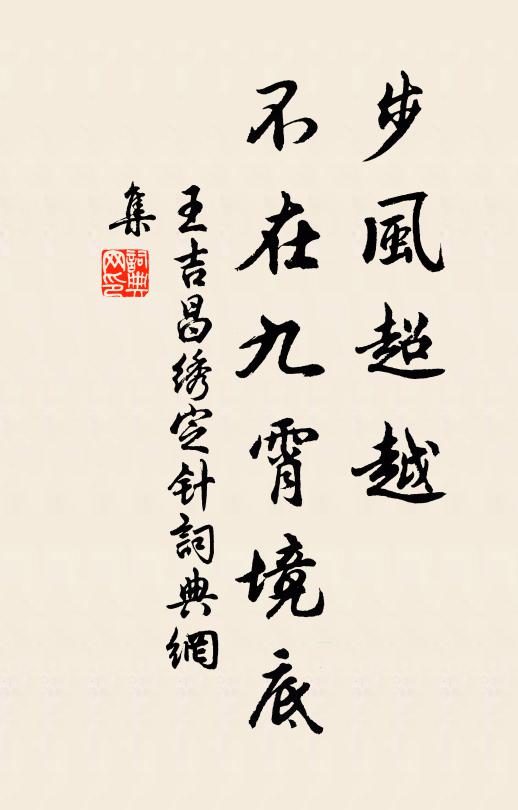 步風超越
不在九霄境底
王吉昌绣定针詞典網
集
詞典
网印